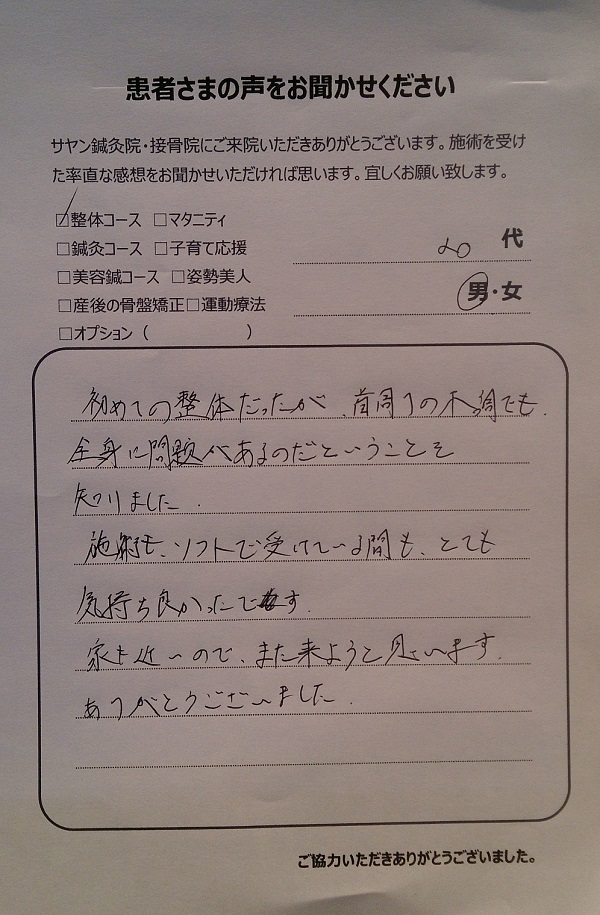 患者さまの声をお聞かせください
サヤン鍼灸院・接骨院にご来院いただきありがとうございます。施術を受け
た率直な感想をお聞かせいただければ思います。宜しくお願い致します。
☑整体コース □マタニティ
□鍼灸コース □子育て応援
20 代
□美容鍼コース □姿勢美人
男・女
□産後の骨盤矯正□運動療法
□オプション（ ）
初めての整体だったが、首周りの不調でも、
全身に問題があるのだということを
知りました.
施術も、ソフトで受けている間も、とても
気持ち良かったです.
家も近いので、また来ようと思います.
ありがとうございました.
ご協力いただきありがとうございました。